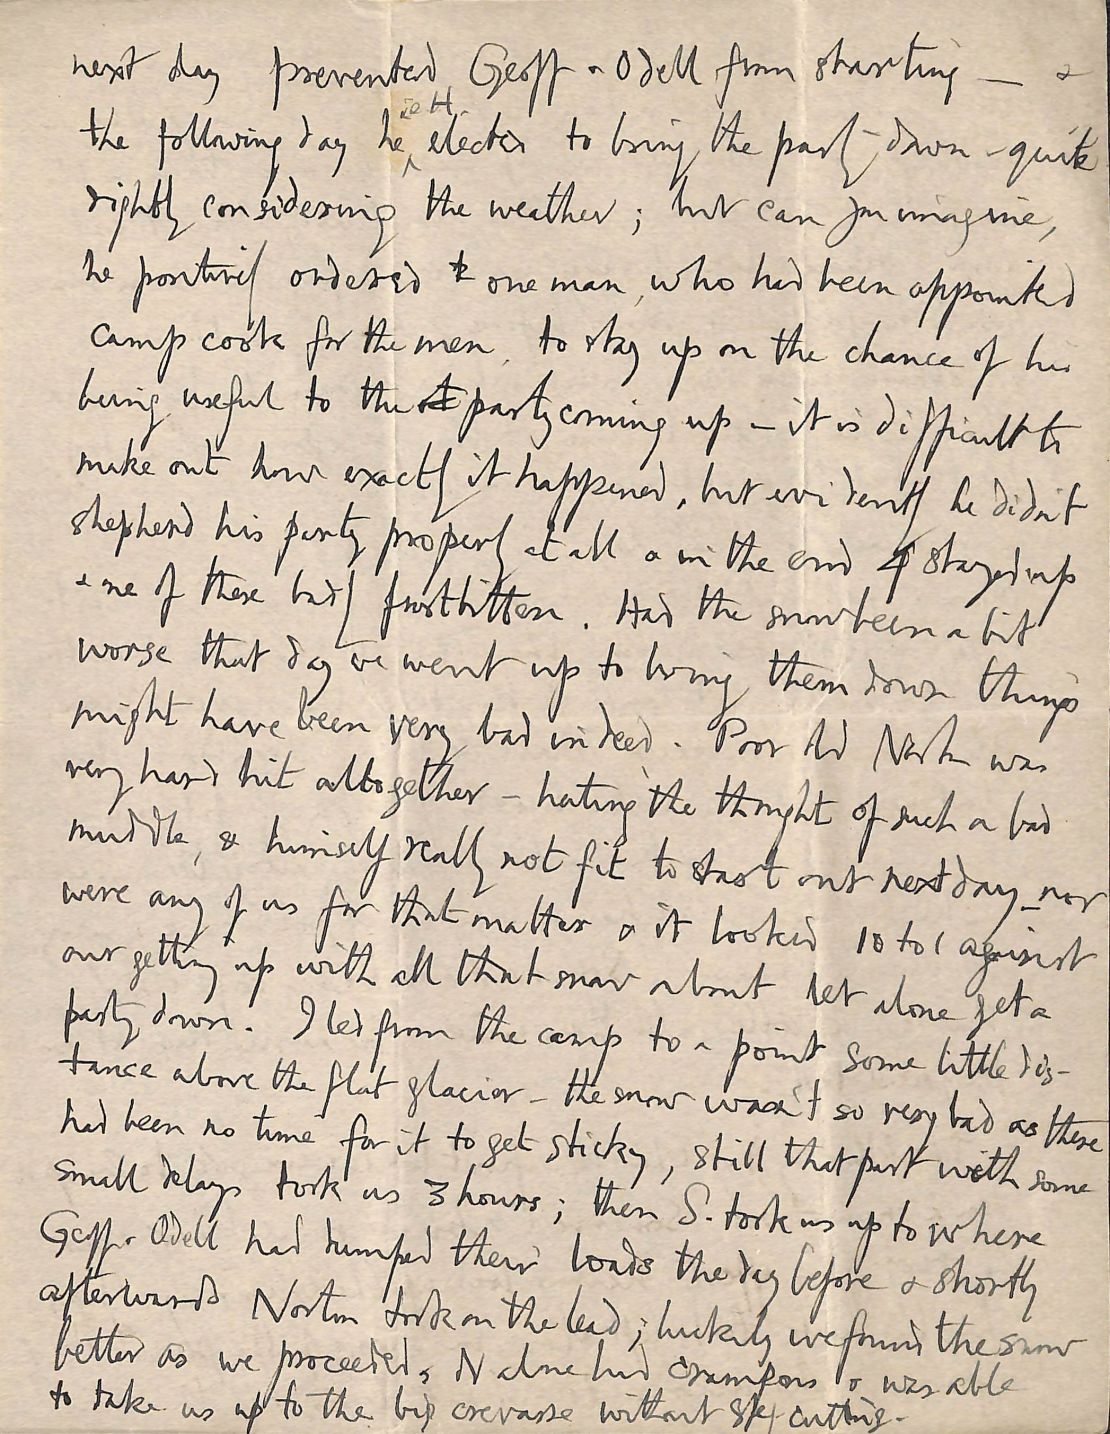 next day prevented Geoff & Odell from starting — &
the following day he ^ie H.^ elected to bring the party down - quite
rightly considering the weather ; but can you imagine,
he positively ordered one man, who had been appointed
camp cook for the men, to stay up on the chance of his
being useful to the party coming up - it is difficult to
make out how exactly it happened, but evidently he didn't
shepherd his party properly at all & in the end 4 stayed up
one of these badly frostbitten. Had the snow been a bit
worse that day we went up to bring them down things
might have been very bad indeed. Poor old Norton was
very hard hit altogether - hating the thought of such a bad
muddle, & himself really not fit to start out next day - nor
were any of us for that matter & it looked 10 to 1 against
our getting up with all that snow about let alone get a
party down. I led from the camp to a point some little dis-
tance above the flat glacier - the snow wasn't so very bad as there
had been no time for it to get sticky, still that part with some
small delays took us 3 hours; then S. took us up to where
Geoff & Odell had dumped their loads the day before & shortly
afterwards Norton took on the lead; luckily we found the snow
better as we proceeded, N alone had crampons & was able
to take us up to the big crevasse without step cutting.